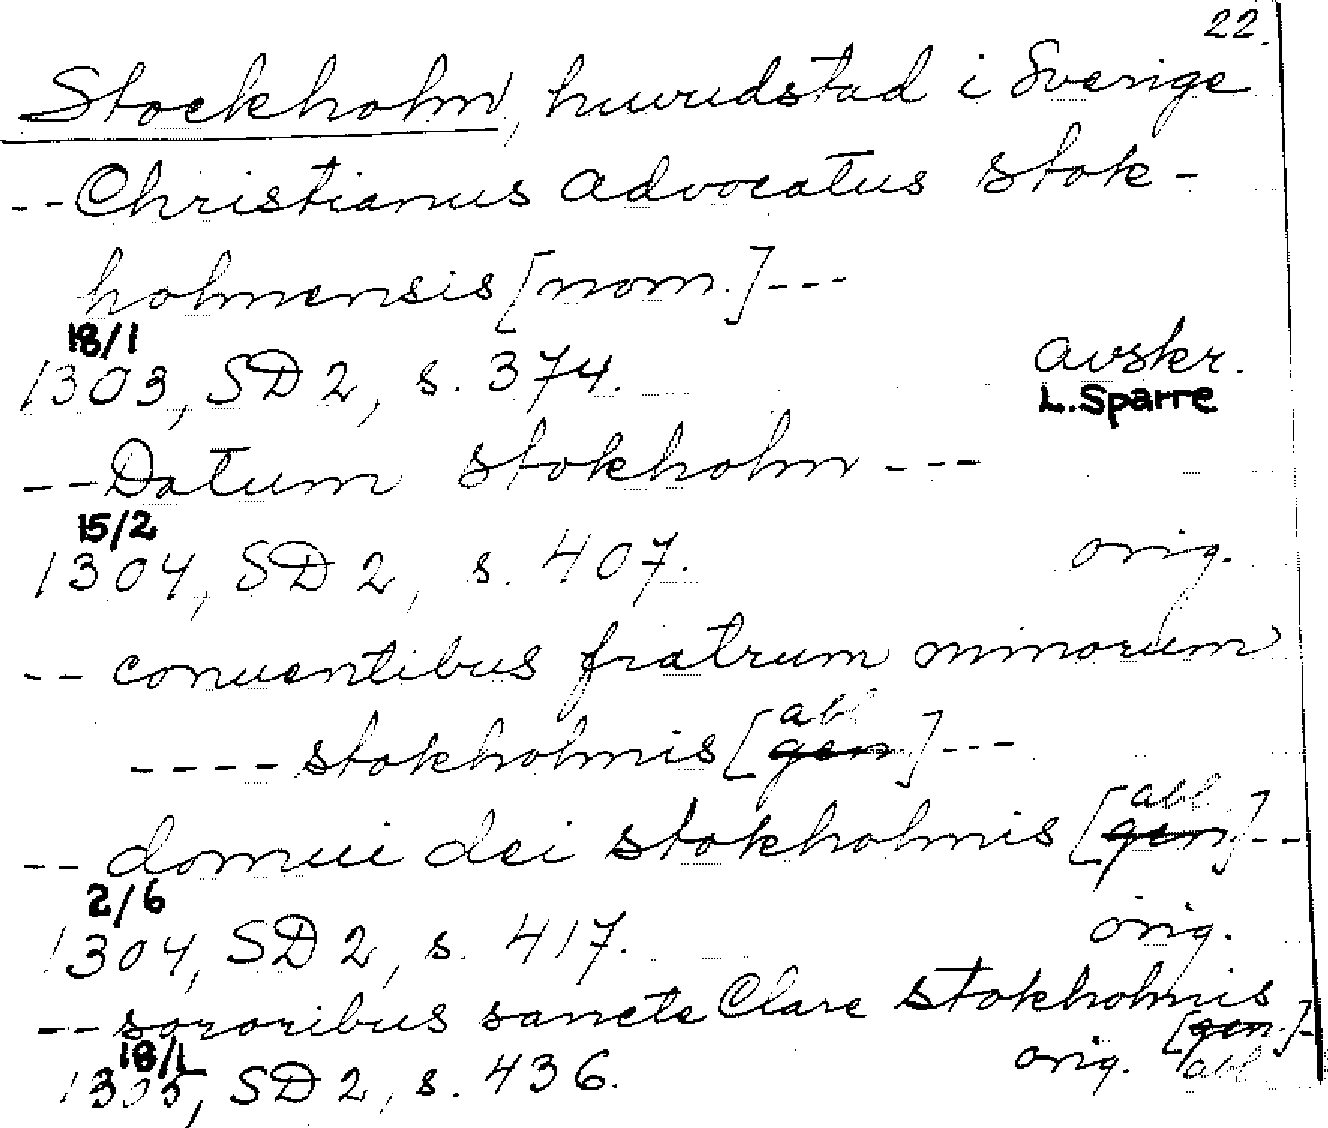 22.
Stockholm, huvudstad i Sverige
--Christianus advocatus stok-
holmensis [nom.]---
18/1
1303, SD 2, s. 374. avskr.
L. Sparre
--Datum stokholm---
15/2
1304, SD 2, s. 407. orig.
-- conuentibus fratrum minorum
abl
---- stokholmis [gen]---
abl
-- domui dei stokholmis [gen]--
2/6
1304, SD 2, s. 417. orig.
--sororibus sancte Clare stokholmis
[gen.]-
18/1
1305, SD 2, s. 436. orig. abl